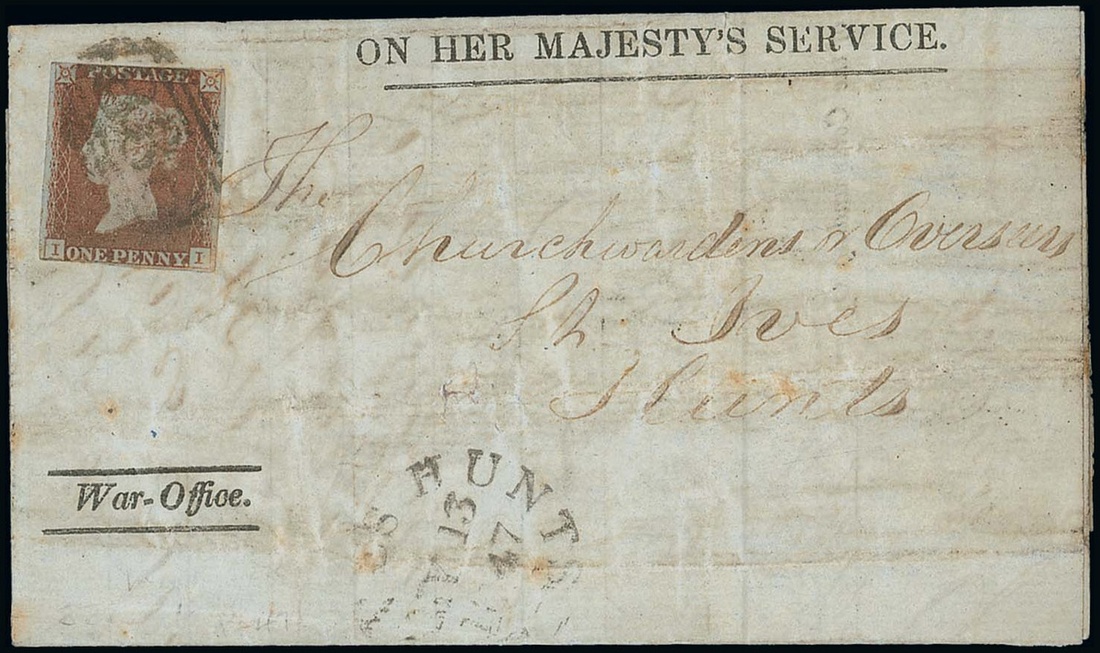 ON HER MAJESTY'S SERVICE.
POSTAGE
I ONE PENNY I
The
Churchwardens & Overseers
St. Ives
Hunts
War-Office.
HUNTS
13
47